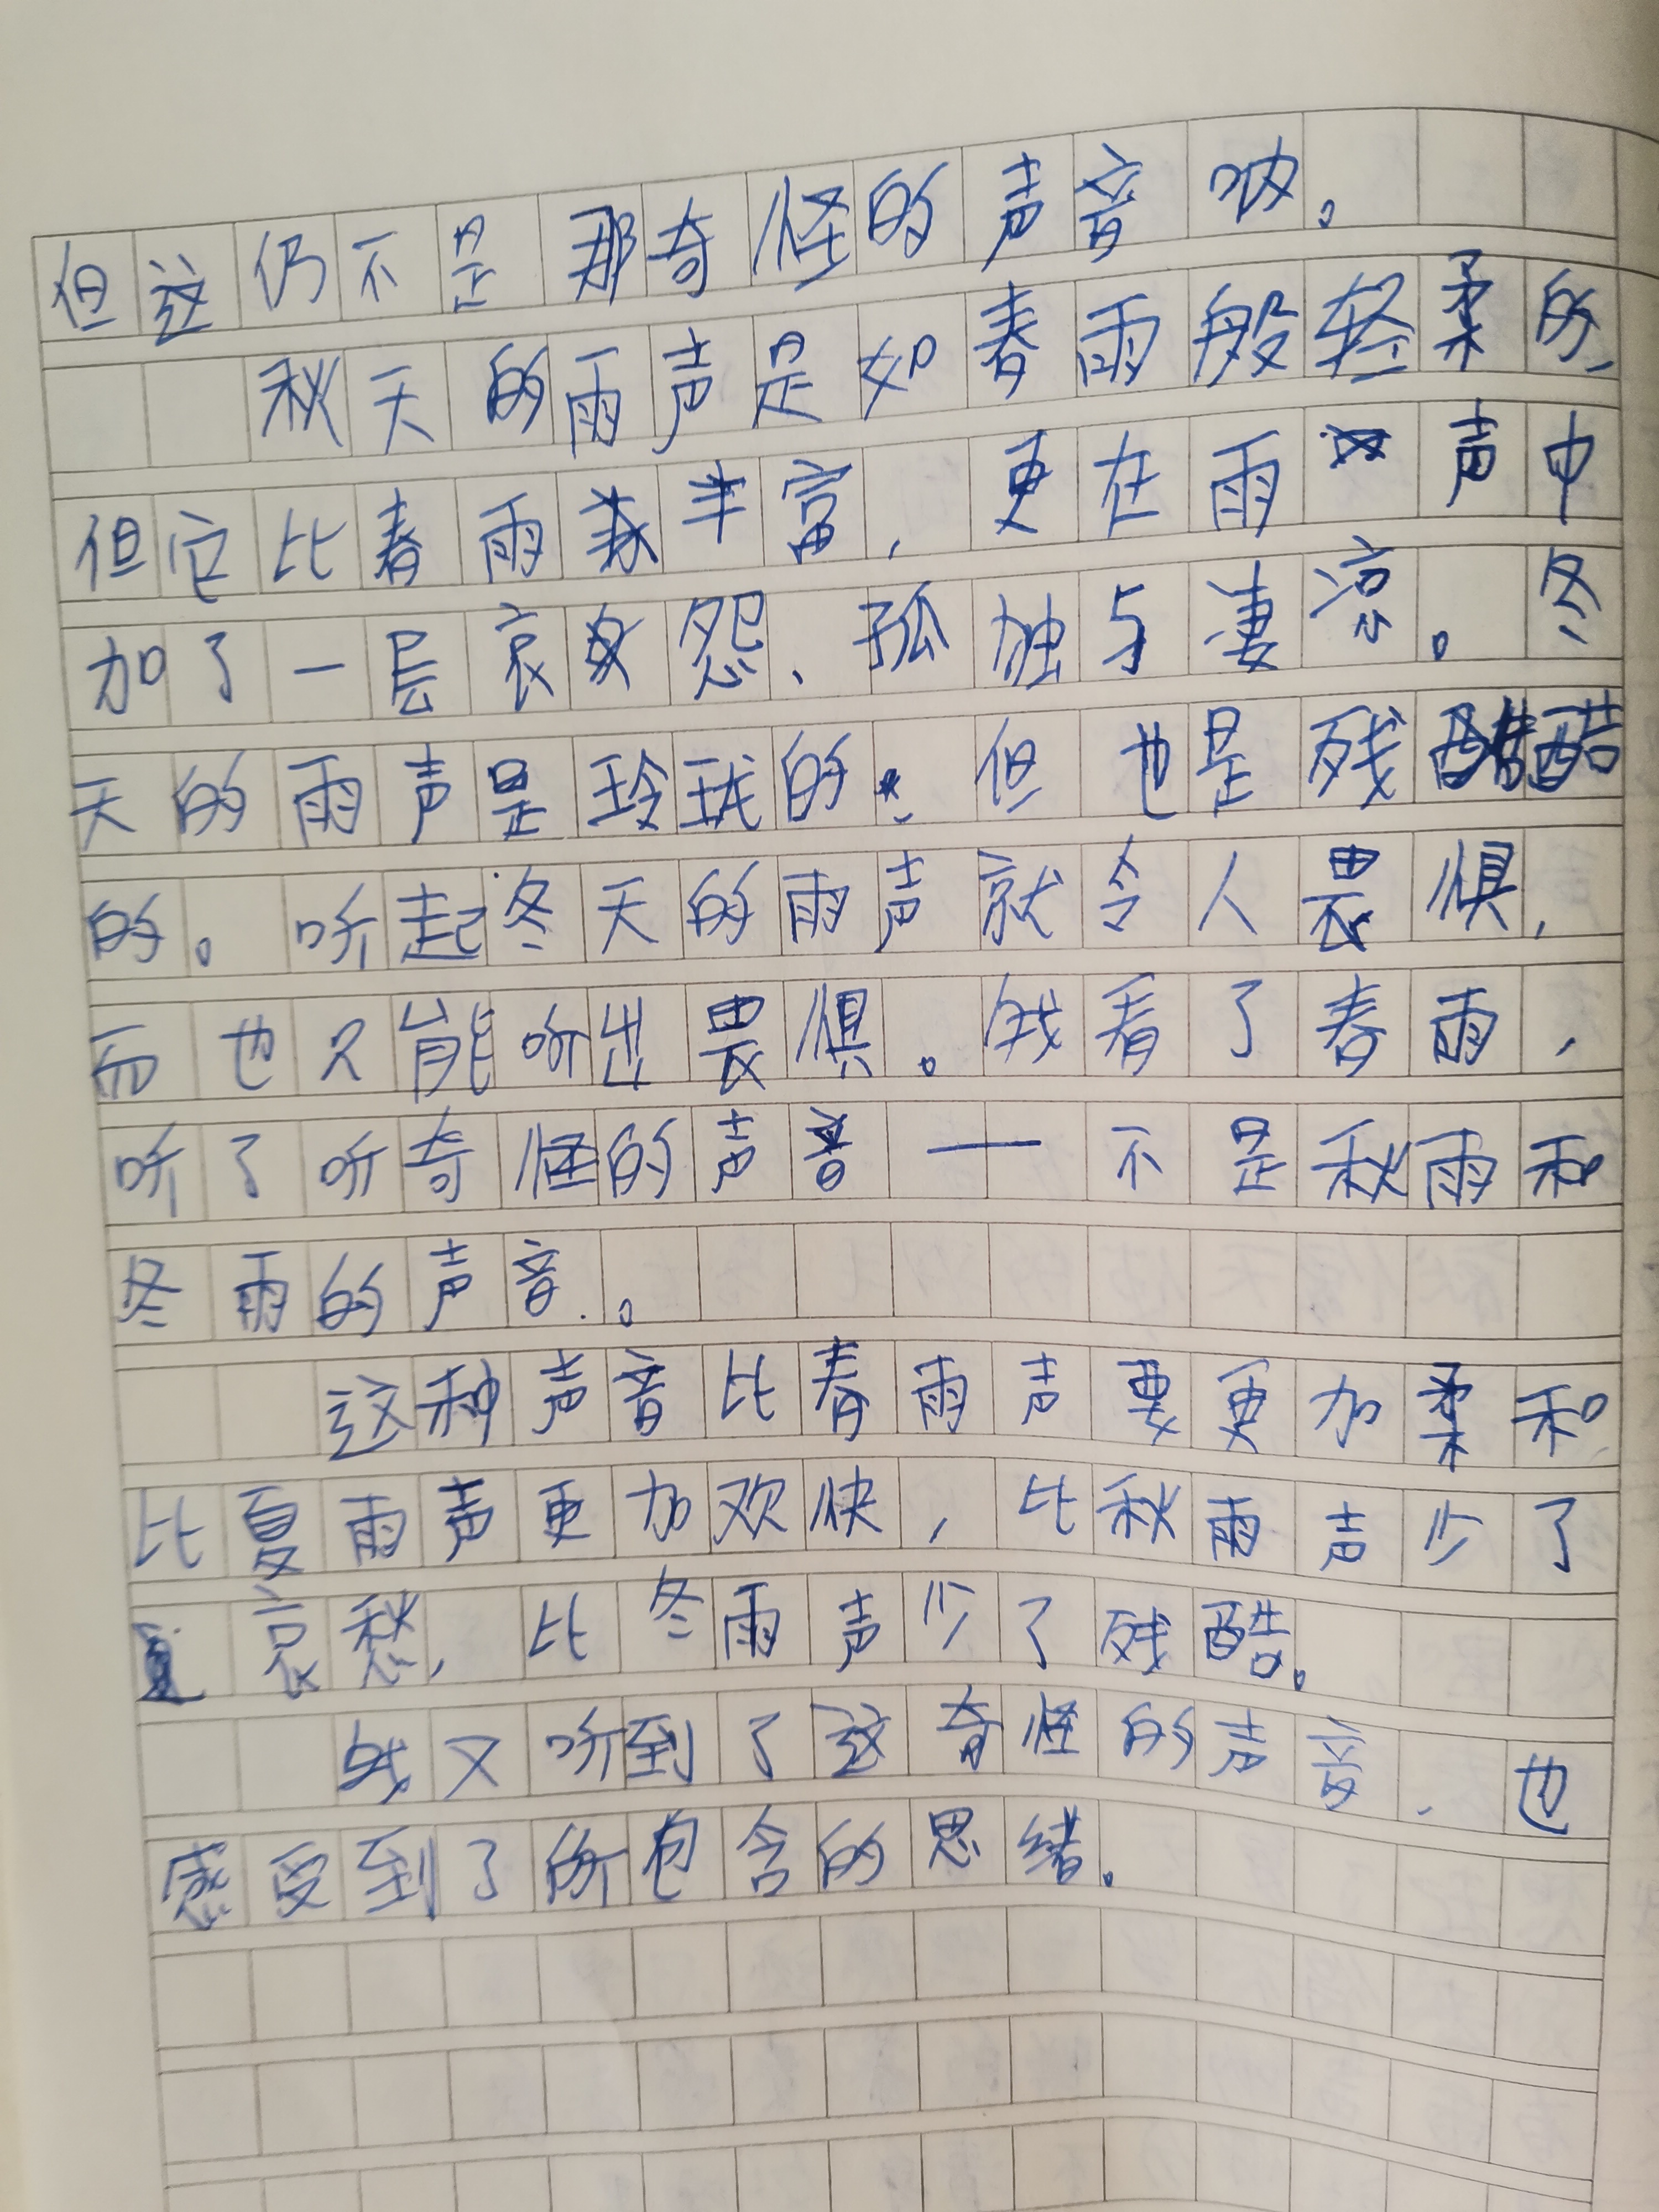 但这仍不是那奇怪的声音呐。
秋天的雨声是如春雨般轻柔的,
但它比春雨丰富,更在雨声中
加了一层哀怨、孤独与凄凉。冬
天的雨声是玲珑的.但也是残酷
的。听起冬天的雨声就令人畏惧,
而也只能听出畏惧。我看了春雨,
听了听奇怪的声音——不是秋雨和
冬雨的声音。
这种声音比春雨声要更加柔和
比夏雨声更加欢快,比秋雨声少了
哀愁,比冬雨声少了残酷。
我又听到了这奇怪的声音,也
感受到了所包含的思绪。